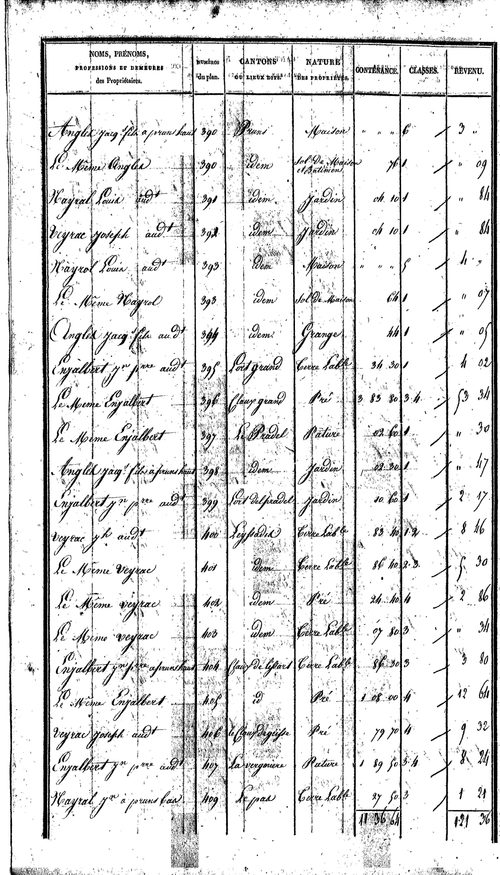 NOMS, PRÉNOMS, PROFESSIONS ET DEMEURES des Propriétaires. NUMÉROS du plan. CANTONS OU LIEUX DITS. NATURE DES PROPRIÉTÉS. CONTENANCE. CLASSES. REVENU.
Anglés jacq. fils a pruns haut 390 Pruns Maison " " " 6 3 "
Le Même Anglés 390 idem Sol de Maison et Batiment 76 1 " 09
Nayral Louis audt 391 idem Jardin 04 10 1 " 84
Veyrac Joseph audt 392 idem Jardin 04 10 1 " 84
Nayrol Louis audt 393 idem Maison " " " 5 4 "
Le Même Nayrol 393 idem Sol de Maison 64 1 " 07
Anglés jacq. fils audt 394 idem Grange 44 1 " 05
Enjalbert jn pre audt 395 Lort grand Terre Lable 34 30 1 4 02
Le Même Enjalbert 396 Claux grand Pré 3 83 80 3 4 53 34
Le Même Enjalbert 397 Le Pradel Pature 02 60 1 " 30
Anglés jacq. fils a pruns haut 398 idem Jardin 02 30 1 " 47
Enjalbert jn pre audt 399 Lort del pradel Jardin 10 60 1 2 17
Veyrac jh audt 400 Terre Lable 83 40 1 2 8 26
Le Même Veyrac 401 idem Terre Lable 86 40 2 3 5 30
Le Même Veyrac 402 idem Pré 24 40 4 2 86
Le Même Veyrac 403 idem Terre Lable 07 80 3 " 34
Enjalbert jn pre a pruns haut 404 Claux de Terre Lable 86 30 3 3 80
Le Même Enjalbert 405 id Pré 1 08 00 4 12 64
Veyrac Joseph audt 406 Pré 79 70 4 9 32
Enjalbert jn pre audt 407 La vergniere Pature 1 89 50 3 4 8 24
Nayral jn a pruns bas 409 Le pas Terre Lable 27 50 3 1 21
11 36 64 121 36